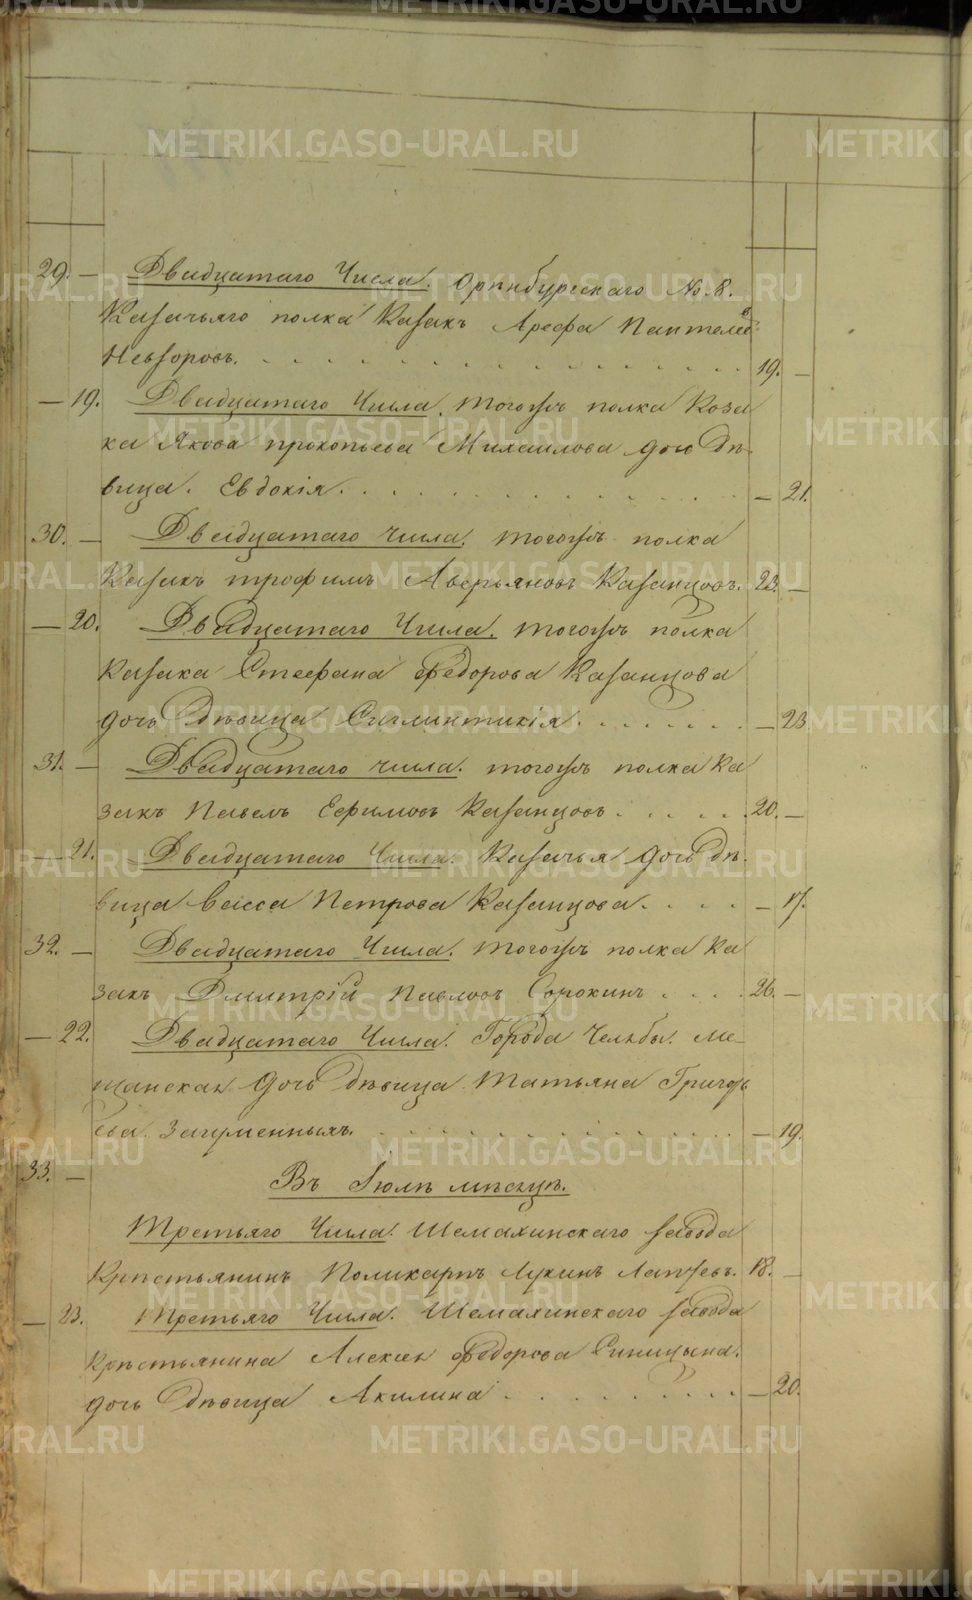 29. — Двадцатаго Числа. Оринбургскаго №. 8.
Казачьяго полка Казакъ Арефа Пантелеѣ
Невзоровъ. 19. —
— 19. Двадцатаго Числа, тогожъ полка Коза
ка Якова прокопьева Михаилова дочь дѣ-
вица. Евдокія. — 21.
30. — Двадцатаго числа, тогожъ полка
Казакъ трофимъ Аверьяновъ Казанцовъ. 23. —
— 20. Двадцатаго Числа. тогожъ полка
Казака Стефана Федорова Казанцова
дочь дѣвица Сиглинтикія. — 23
31. — Двадцатаго числа. тогожъ полка Ка
закъ Павелъ Ефимовъ Казанцовъ. 20. —
— 21. Двадцатаго Числа. Казачья дочь дѣ-
вица Васса Петрова Казанцова. — 17.
32. — Двадцатаго Числа. тогожъ полка Ка
закъ Дмитрій Павловъ Сорокинъ. 26. —
— 22. Двадцатаго Числа. Города Челябы. ме-
щанская дочь дѣвица Татьяна Григорь
ева. Загуменныхъ. — 19.
33. — Въ Іюлѣ мѣсяцѣ.
Третьяго Числа. Шемахинскаго завода
Крѣстьянинъ Поликарпъ Лукинъ Лаптевъ. 18. —
— 23. Третьяго Числа. Шемахинскаго завода
Крѣстьянина Алексѣя Федорова Синицына.
дочь дѣвица Акилина — 20.
METRIKI.GASO-URAL.RU